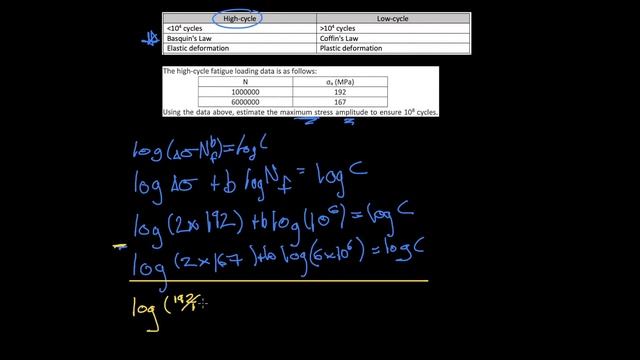 High-cycle Low-cycle
<10⁴ cycles >10⁴ cycles
Basquin's Law Coffin's Law
Elastic deformation Plastic deformation
The high-cycle fatigue loading data is as follows:
N σₐ (MPa)
1000000 192
6000000 167
Using the data above, estimate the maximum stress amplitude to ensure 10⁸ cycles.
log(Δσ N_f^b) = log C
log Δσ + b log N_f = log C
log (2×192) + b log (10⁶) = log C
log (2×167) + b log (6×10⁶) = log C
log (192/